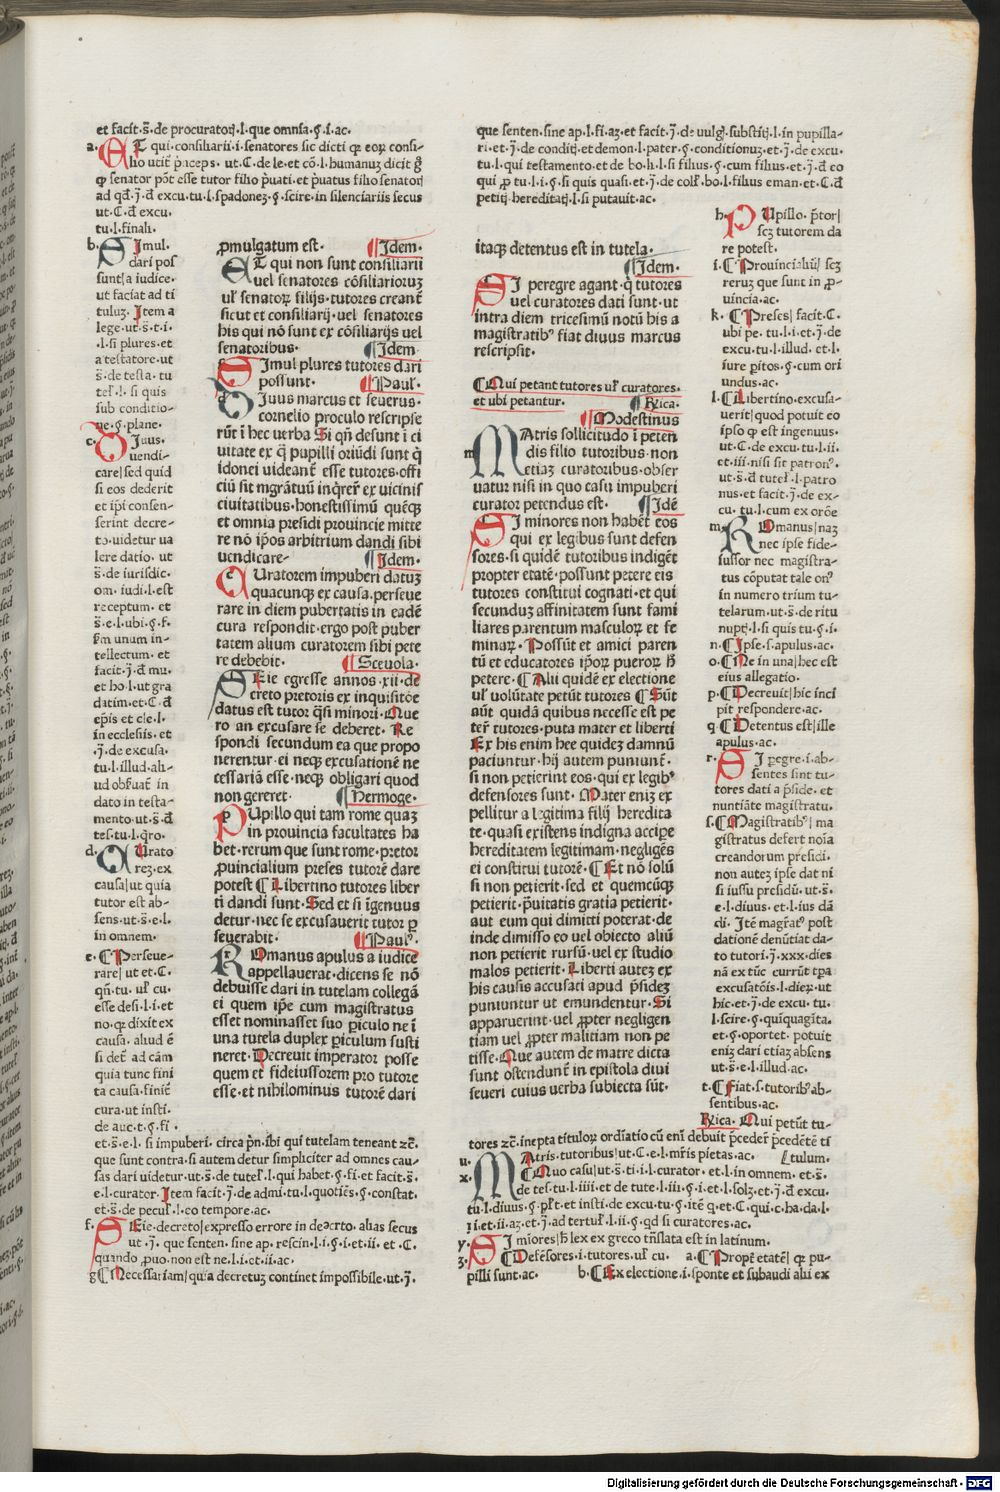 et facit.s̄.de procuratorꝭ.l.que omnia.§.i.ac.
a. ET qui.consiliarii.i.senatores sic dicti qꝫ eoꝝ consi-
lio utit̄ p̄nceps.ut.C.de le.et cō.l.humanuꝫ dicit
ꝙ senator pōt esse tutor filio p̄uati.et p̄uatus filio senatorꝭ
ad qđ.j̄.đ excu.tu.l.spadoneꝫ.§.scire.in silenciariis secus
ut.C.đ excu.
tu.l.finali.
b. SImul.
dari pos
sunt|a iudice.
ut faciat ad ti
tuluꝫ.Item a
lege.ut.s̄.t.i.
.l.si plures.et
a testatore.ut
s̄.de testa.tu
tel̄.l.si quis
sub conditio-
ne.§.plane.
c. DIuus.
uendi-
care|sed quid
si eos dederit
et ip̄i consen-
serint decre-
to.uidetur ua
lere datio.ut
s̄.de iurisdic.
om.iudi.l.est
receptum.et
s̄.e.l.ubi.§.f.
unum in-
tellectum.et
facit.j̄.đ mu.
et ho.l.ut gra
datim.et.C.đ
ep̄is et cle.l.
in ecclesiis.et
.j̄.de excusa.
tu.l.illud.ali-
in
dato in testa-
mento.ut.s̄.đ
tes.tu.l.q̄ro.
d. CUrato
reꝫ.ex
causa|ut quia
tutor est ab-
sens.ut.s̄.e.l.
in omnem.
e. ¶Perseue-
rare|ut et.C.
qn̄.tu.ul̄ cu.
esse desi.l.i.et
no.qꝫ dixit ex
causa.aliud ē
si det̄ ad cām
quia tunc fini
ta causa.finiē
cura.ut insti.
de auc.t.§.fi.
et.s̄.e.l.si impuberi.circa pn̄.ibi qui tutelam teneant ꝛc̄.
que sunt contra.si autem detur simpliciter ad omnes cau-
sas dari uidetur.ut.s̄.de tutel̄.l.qui habet.§.fi.et facit.s̄.
e.l.curator.Item facit.j̄.de admi.tu.l.quotiēs.§.constat.
et.s̄.de pecul̄.l.eo tempore.ac.
f. SEie.decreto|expresso errore in decreto.alias secus
ut.j̄.que senten.sine ap.rescin.l.i.§.i.et.ii.et.C.
quando ꝓuo.non est ne.l.i.et.ii.ac.
g ¶Necessariam|quia decretuꝫ continet impossibile.ut.j̄.
ꝓmulgatum est. ¶Idem.
ET qui non sunt consiliarii
uel senatores cōsiliarioruꝫ
ul̄ senatoꝝ filijs.tutores creant̄
sicut et consiliarij.uel senatores
his qui nō sunt ex cōsiliarijs uel
senatoribus. ¶Idem
SImul plures tutores dari
possunt. ¶Paul.
DIuus marcus et seuerus.
cornelio proculo rescripse
rūt ī hec uerba Si qn̄ desunt ī ci
uitate ex q̄ pupilli oriūdi sunt q̄
idonei uideant̄ esse tutores.offi
ciū sit mgr̄atuū inq̄rer̄ ex uicinis
ciuitatibus.honestissimū quēqꝫ
et omnia presidi prouincie mitte
re nō ip̄os arbitrium dandi sibi
uendicare- ¶Idem.
CUratorem impuberi datuꝫ
quacunqꝫ ex causa.perseue
rare in diem pubertatis in eadē
cura respondit.ergo post puber
tatem alium curatorem sibi pete
re debebit. ¶Sceuola.
SEie egresse annos.xii.de
creto pretoris ex inquisitōe
datus est tutor q̄si minori.Que
ro an excusare se deberet.Re
spondi secundum ea que propo
nerentur.ei neqꝫ excusationē ne
cessariā esse.neqꝫ obligari quod
non gereret. ¶Hermoge.
PUpillo qui tam rome quaꝫ
in prouincia facultates ha
bet.rerum que sunt rome.pretor
ꝓuincialium preses tutorē dare
potest ¶Libertino tutores liber
ti dandi sunt.Sed et si īgenuus
detur.nec se excusauerit tutor ꝑ
seuerabit. ¶Paul⁹.
ROmanus apulus a iudice
appellauerat.dicens se nō
debuisse dari in tutelam collegā
ei quem ip̄e cum magistratus
esset nominasset suo ꝑiculo ne ī
una tutela duplex ꝑiculum susti
neret.Decreuit imperator posse
quem et fideiussorem pro tutore
esse.et nihilominus tutorē dari
que senten.sine ap.l.fi.aꝫ.et facit.j̄.de uulgꝭ.substitꝭ.l.in pupilla-
ri.et.j̄.de conditꝭ.et demon.l.pater.§.conditionuꝫ.et.j̄.de excu.
tu.l.qui testamento.et de bo.li.l.si filius.§.cum filius.et.j̄.đ eo
qui ꝓ tu.l.i.§.si quis quasi.et.j̄.de coll̄.bo.l.filius eman.et.C.đ
petitꝭ.hereditatꝭ.l.si putauit.ac.
itaqꝫ detentus est in tutela.
¶Idem.
SI peregre agant.q̄ tutores
uel curatores dati sunt.ut
intra diem tricesimū notū his a
magistratib⁹ fiat diuus marcus
rescripsit.
¶Qui petant tutores ul̄ curatores.
et ubi petantur. ¶Rica.
¶Modestinus
MAtris sollicitudo ī peten
dis filio tutoribus.non
etiaꝫ curatoribus.obser
uatur nisi in quo casu impuberi
curator petendus est. ¶Idē
SI minores non habēt eos
qui ex legibus sunt defen
sores.si quidē tutoribus indigēt
propter etatē.possunt petere eis
tutores constitui cognati.et qui
secunduꝫ affinitatem sunt fami
liares parentum masculoꝝ et fe
minaꝝ.Possūt et amici paren
tū et educatores ip̄oꝝ pueroꝝ h̄
petere.¶Alii quidē ex electione
ul̄ uolūtate petūt tutores ¶Sūt
aūt quidā quibus necesse est pe
ter̄ tutores.puta mater et liberti
Ex his enim hec quideꝫ damnū
paciuntur.hij autem puniunt̄.
si non petierint eos.qui ex legib⁹
defensores sunt.Mater eniꝫ ex
pellitur a legitima filij heredita
te.quasi existens indigna accipe
hereditatem legitimam.negligēs
ei constitui tutorē.¶Et nō solū
si non petierit.sed et quemcūqꝫ
petierit.p̄uitatis gratia petierit.
aut eum qui dimitti poterat.de
inde dimisso eo uel obiecto aliū
non petierit rursū.uel ex studio
malos petierit.Liberti auteꝫ ex
his causis accusati apud p̄sideꝫ
puniuntur ut emundentur.Si
apparuerint.uel ꝓpter negligen
tiam uel ꝓpter malitiam non pe
tisse.Que autem de matre dicta
sunt ostendunt̄ in epistola diui
seueri cuius uerba subiecta sūt.
h. PUpillo.p̄tor|
scꝫ tutorem da
re potest.
i. ¶Prouincialiū|scꝫ
reruꝫ que sunt in ꝓ-
uincia.ac.
k. ¶Preses|facit.C.
ubi pe.tu.l.i.et.j̄.de
excu.tu.l.illud.et.l.
iure ꝑitos.§.cum ori
undus.ac.
l. ¶Libertino.excusa-
uerit|quod potuit eo
ipso qꝫ est ingenuus.
ut.C.de excu.tu.l.ii.
et.iii.nisi sit patron⁹.
ut.s̄.đ tutel̄.l.patro
nus.et facit.j̄.de ex-
cu.tu.l.cum ex orōe
m. ROmanus|naꝫ
nec ipse fide-
iussor nec magistra-
tus cōputat tale on⁹
in numero trium tu-
telarum.ut.s̄.de ritu
nuptꝭ.l.si quis tu.§.i.
n. ¶Ipse.s.apulus.ac.
o. ¶Ne in una|hec est
eius allegatio.
p. ¶Decreuit|hic inci
pit respondere.ac.
q ¶Detentus est|ille
apulus.ac.
r. SI pegre.i.ab-
sentes sint tu-
tores dati a p̄side.et
nuntiāte magistratu.
s. ¶Magistratib⁹|ma
gistratus defert noīa
creandorum presidi.
non auteꝫ ipse dat ni
si iussu presidū.ut.s̄.
e.l.diuus.et.l.ius dā
di.Itē magr̄at⁹ post
dationē denūtiat da-
to tutori.j̄.xxx.dies
nā ex tūc currūt
excusatōis.l.dieꝝ.ut
hic.et.j̄.de excu.tu.
l.scire.§.quīquagīta.
et.§.oportet.potuit
eniꝫ dari etiaꝫ absens
ut.s̄.e.l.illud.ac.
t. ¶Fiat.s.tutorib⁹ ab-
sentibus.ac.
Rica. Qui petūt tu-
tores ꝛc̄.inepta tituloꝝ ordīatio cū enī debuit p̄ceder̄ p̄cedētē ti
tulum.
u. MAtris.tutoribus|ut.C.e.l.mr̄is pietas.ac.
x. ¶Quo casu|ut.s̄.ti.i.l.curator.et.l.in omnem.et.s̄.
de tes.tu.l.iiii.et de tute.l.iii.§.i.et.l.solꝫ.et.j̄.đ excu.
tu.l.diuus.§.pl̄t.et insti.de excu.tu.§.itē q̄.et.C.qui.c.ba.da.l.
.et.ii.aꝫ.et.j̄.ad tertul̄.l.ii.§.qđ si curatores.ac.
y. SI mīores|h̄ lex ex greco trn̄slata est in latinum.
z. ¶Defēsores.i.tutores.ul̄ cu. a.¶Propt̄ etatē|qꝫ pu-
pilli sunt.ac. b.¶Ex electione.i.sponte et subaudi alii ex
Digitalisierung gefördert durch die Deutsche Forschungsgemeinschaft - DFG